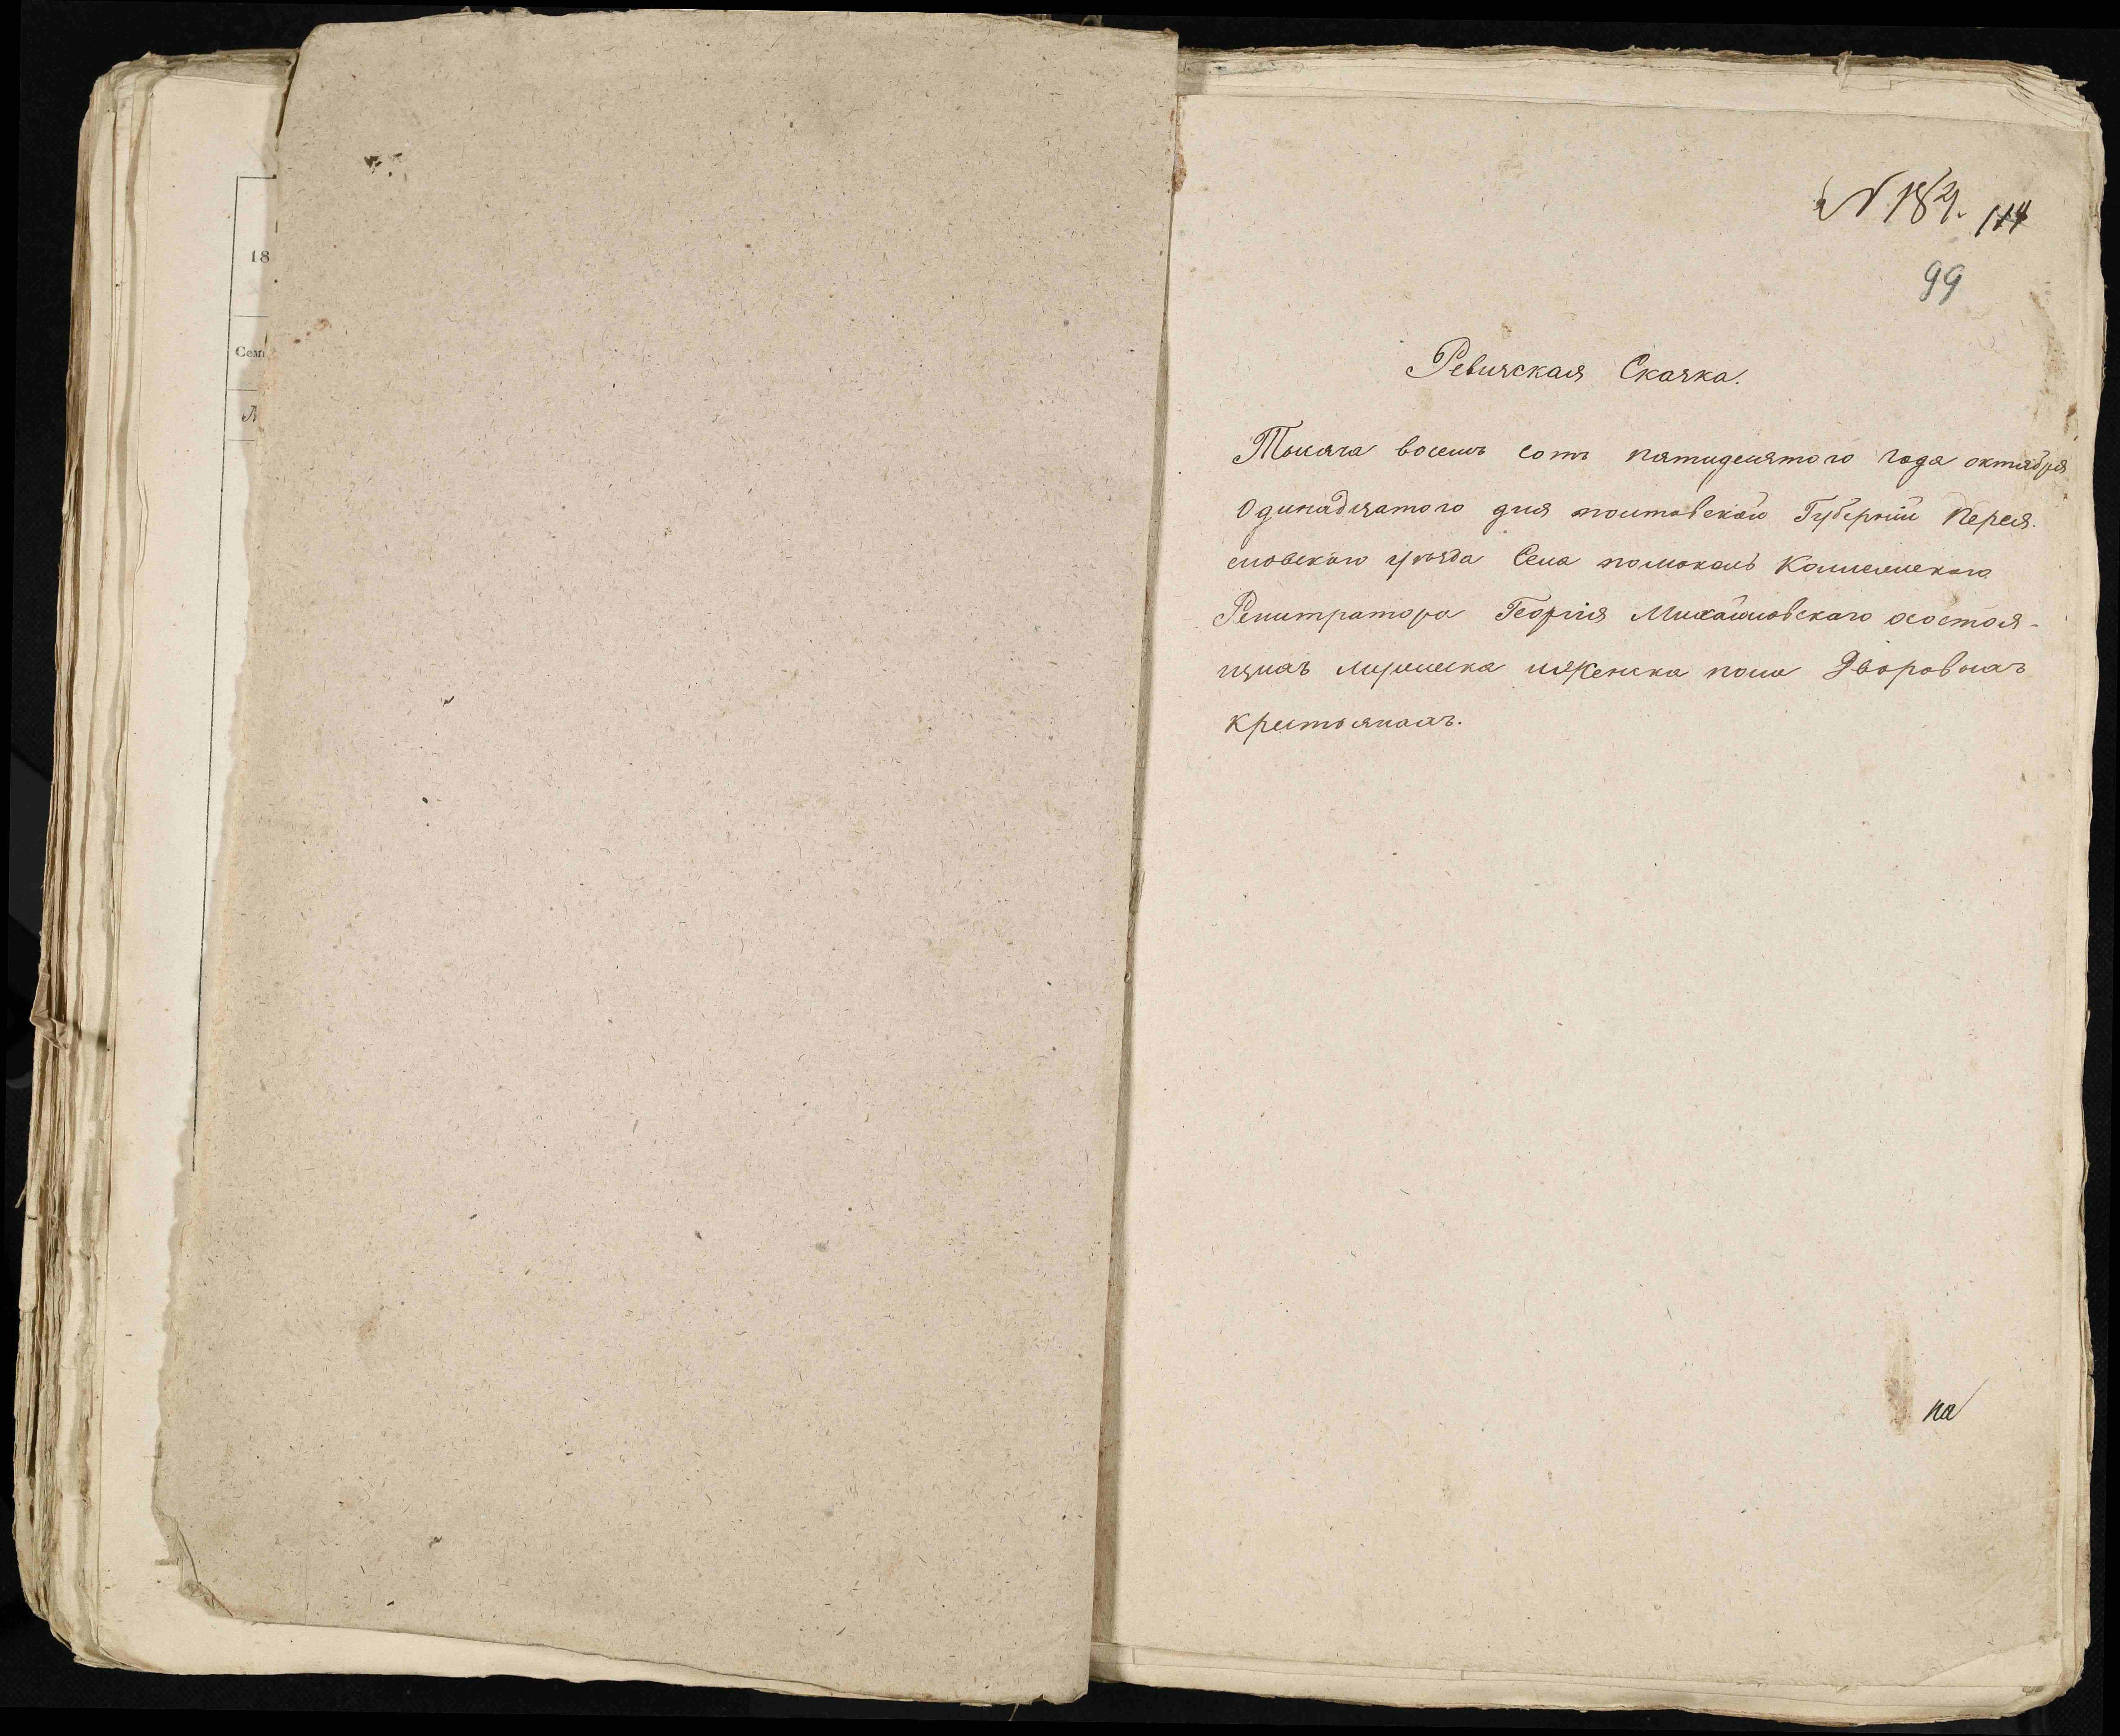 18
Семь
Л
№ 184. 114
99
Ревизская Сказка.
Тысяча восемь сотъ пятидесятого года октября
Одинадцатого дня полтавской Губерніи Перея-
словского уезда Села помокаль Коллежского
Регистратора Георгія Михайловскаго осостоя-
щихъ мужеска иженска пола Дворовыхъ
крестьянахъ.
на